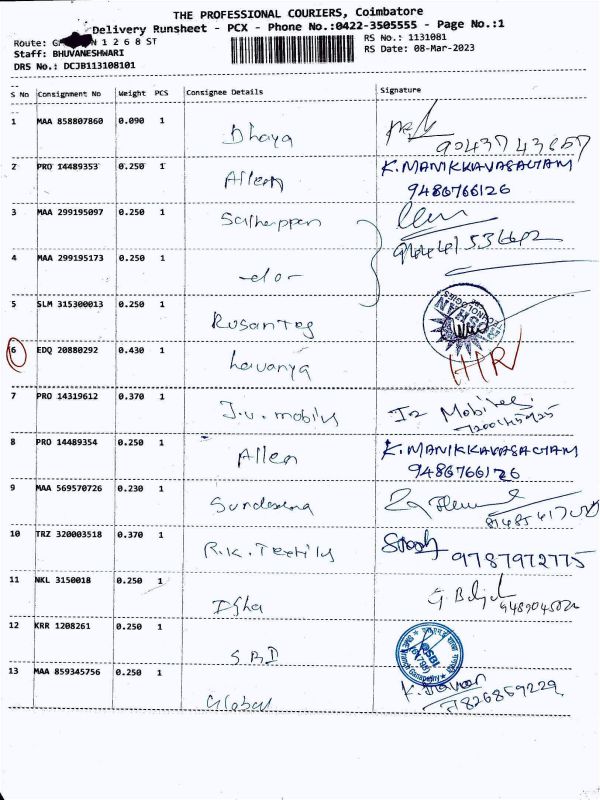 THE PROFESSIONAL COURIERS, Coimbatore
Delivery Runsheet - PCX - Phone No.:0422-3505555 - Page No.:1
Route: N 1 2 6 8 ST RS No.: 1131081
Staff: BHUVANESHWARI RS Date: 08-Mar-2023
DRS No.: DCJB113108101
S No Consignment No Weight PCS Consignee Details Signature
1 MAA 858807860 0.090 1 Dhaya
2 PRO 14489353 0.250 1 Allen K. MANIKKAVASAGAM
9486766126
3 MAA 299195097 0.250 1
4 MAA 299195173 0.250 1 -do-
5 SLM 315300013 0.250 1
TECHNOLOGIES
6 EDQ 20880292 0.430 1 Lavanya
7 PRO 14319612 0.370 1 J.V. mobiles Mobiles
8 PRO 14489354 0.250 1 Allen K. MANIKKAVASAGAM
9486766126
9 MAA 569570726 0.230 1
10 TRZ 320003518 0.370 1 R.K. Textiles 9787972775
11 NKL 3150018 0.250 1
12 KRR 1208261 0.250 1 SBI
13 MAA 859345756 0.250 1 Global